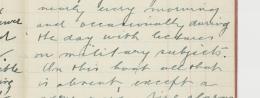 nearly every morning
and occasionally during
the day with lectures
on military subjects.
On this boat all that
is absent except a